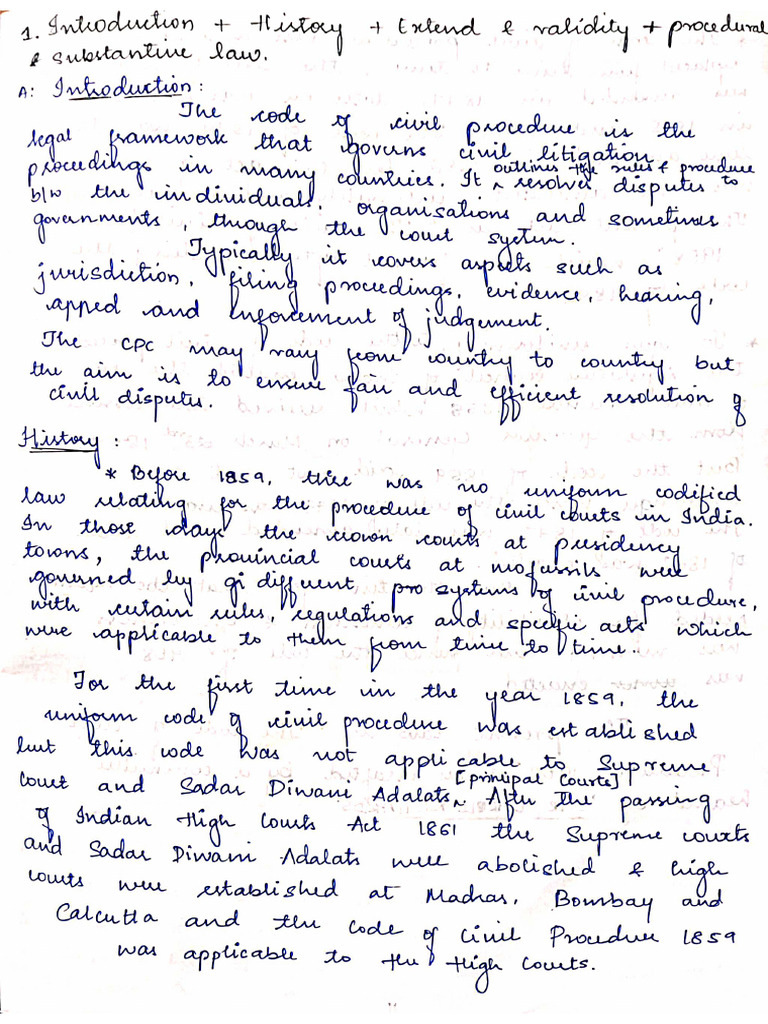 1. Introduction + History + Extend & validity + procedural
& substantive law.
A: Introduction:
The code of civil procedure is the
legal framework that governs civil litigation
proceedings in many countries. It outlines the rules & procedure to
b/w the individuals, organisations and sometimes resolves disputes
governments, through the court system.
Typically it covers aspects such as
jurisdiction, filing proceedings, evidence, hearing,
apped and enforcement of judgement.
The CPC may vary from country to country but
the aim is to ensure fair and efficient resolution of
civil disputes.
History:
* Before 1859, there was no uniform codified
law relating for the procedure of civil courts in India.
In those days the crown courts at presidency
towns, the provincial courts at mofussils were
governed by gi different pro systems of civil procedure,
with certain rules, regulations and specific acts which
were applicable to them from time to time.
For the first time in the year 1859, the
uniform code of civil procedure was established
but this code was not applicable to Supreme
court and Sadar Diwani Adalats [prinipal Courts]. After the passing
of Indian High Courts Act 1861 the Supreme courts
and Sadar Diwani Adalats were abolished & high
courts were established at Madras, Bombay and
Calcutta and the Code of Civil Procedure 1859
was applicable to the High Courts.